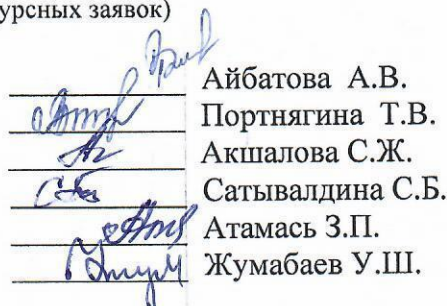 урсных заявок)
Айбатова А.В.
Портнягина Т.В.
Акшалова С.Ж.
Сатывалдина С.Б.
Атамась З.П.
Жумабаев У.Ш.